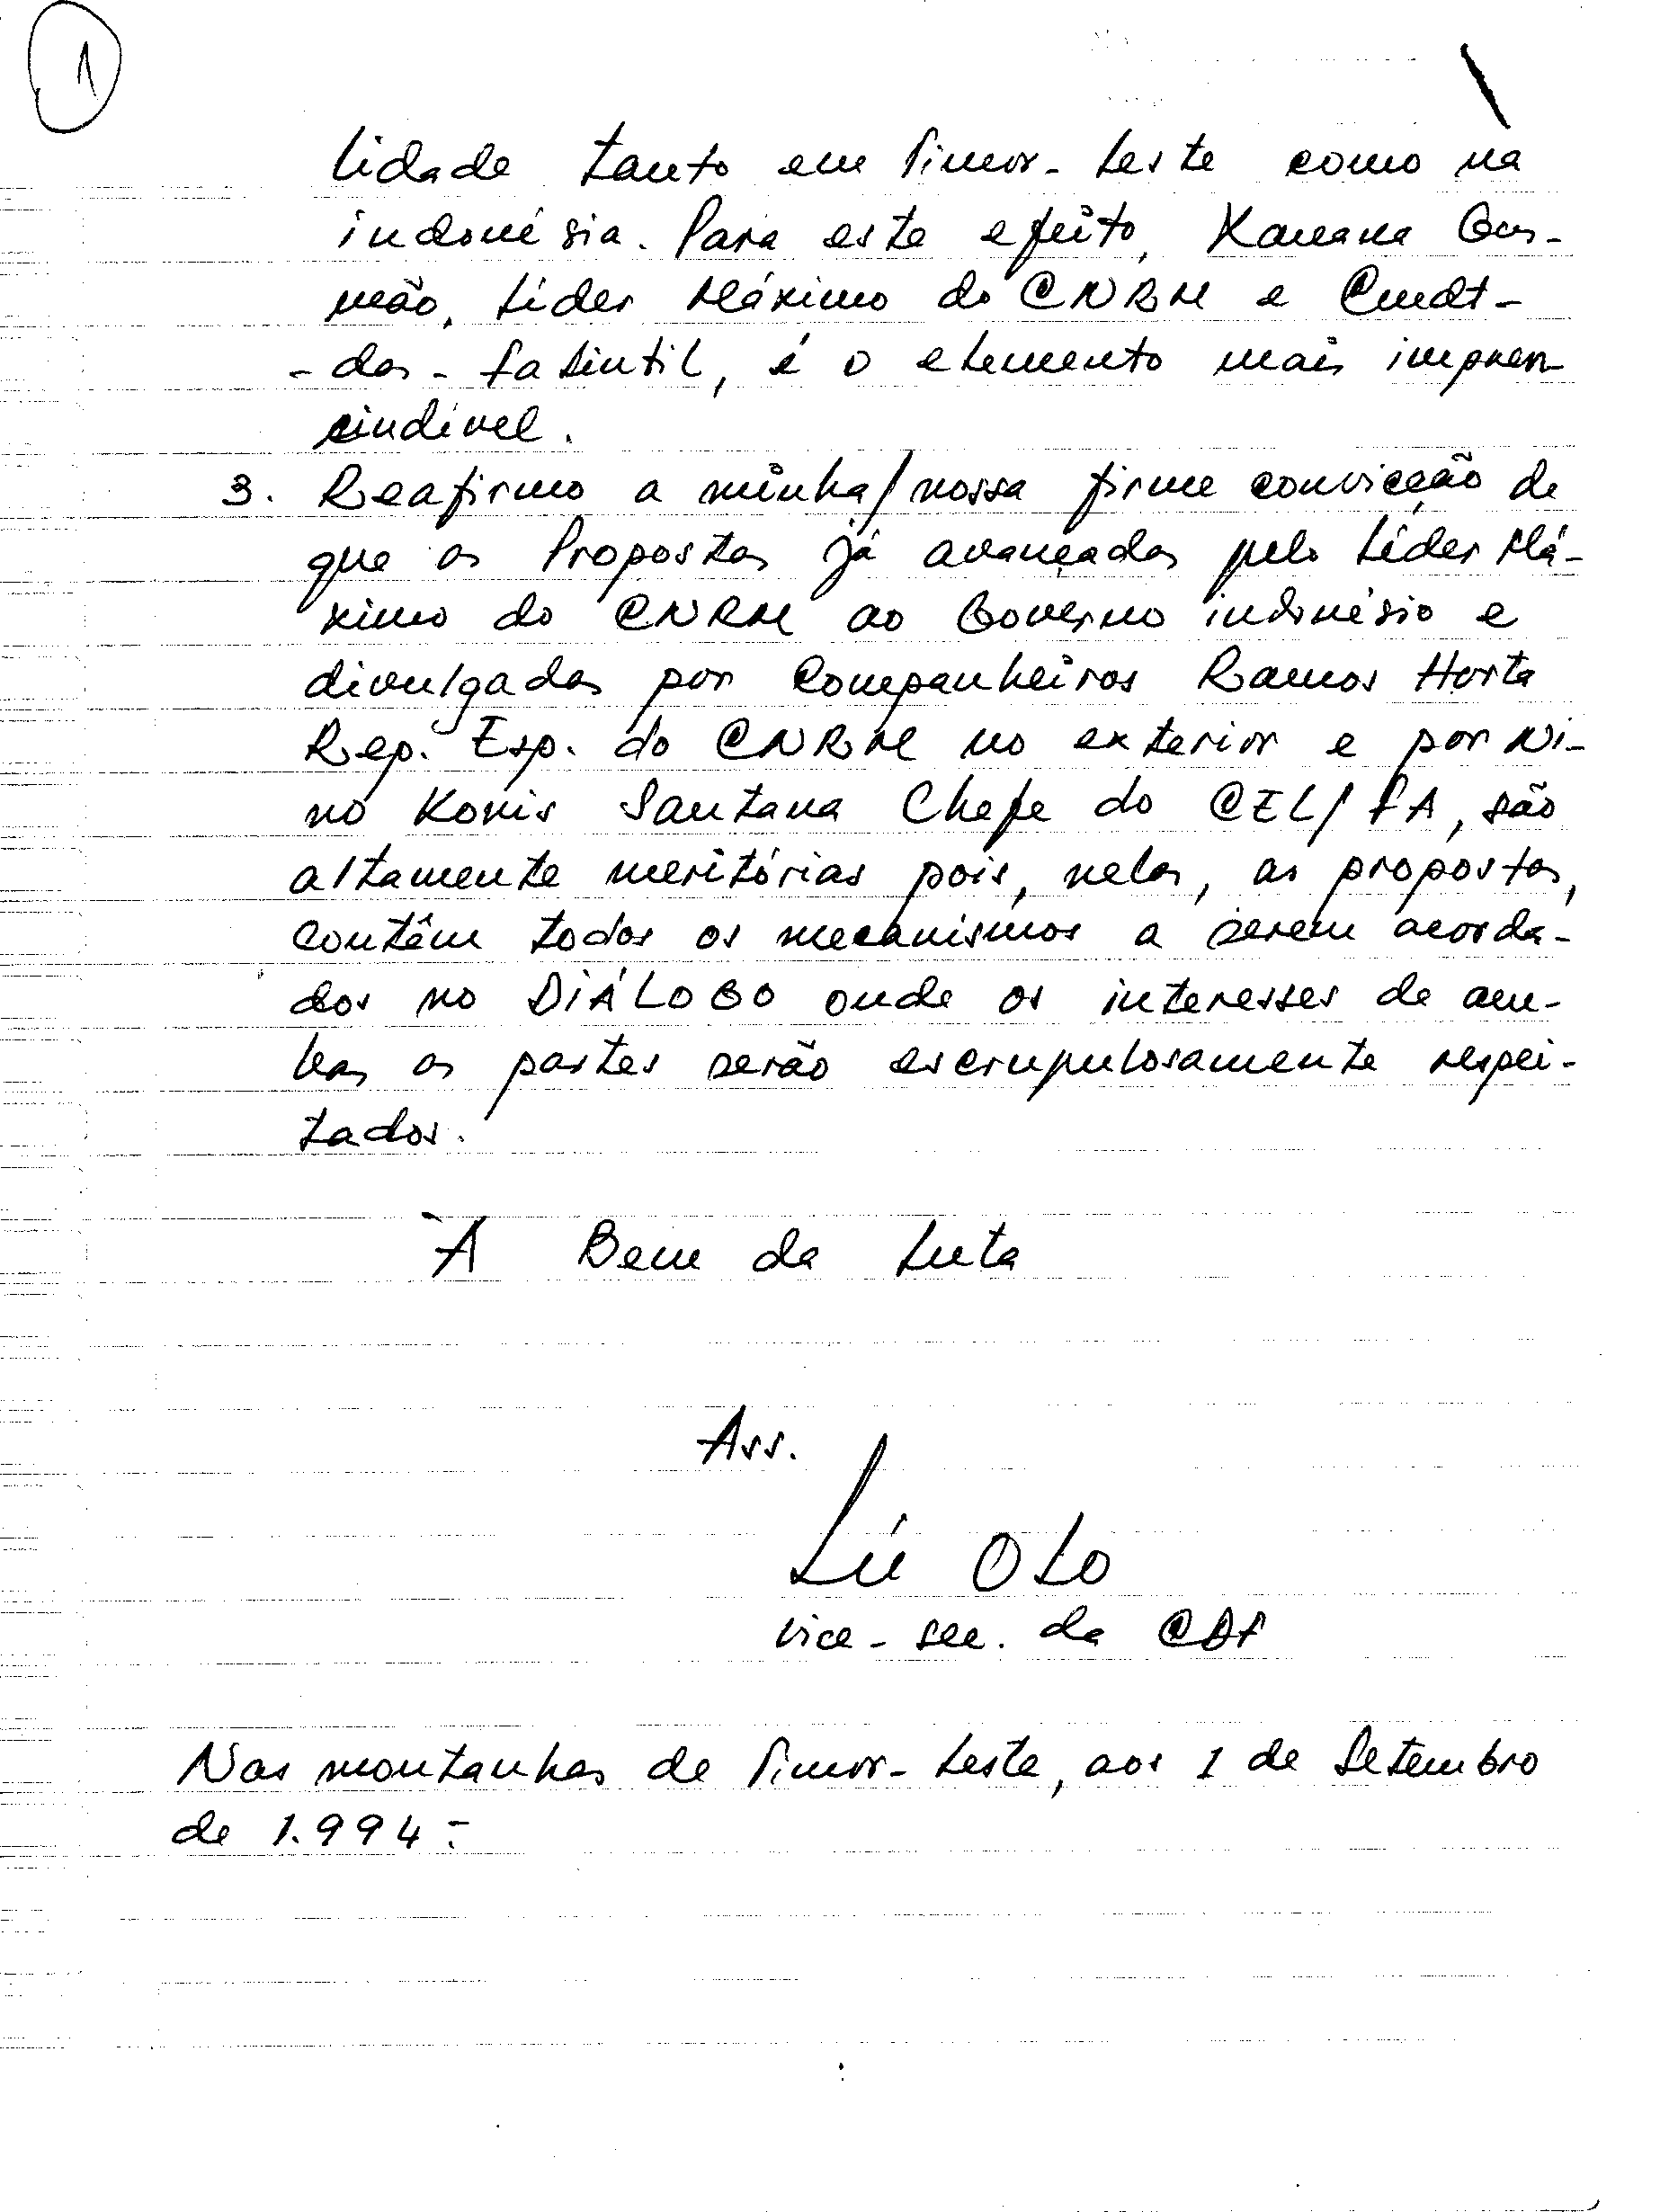 1
lidade tanto em Timor-Leste como na
indonésia. Para este efeito, Xanana Gus-
mão, Líder Máximo do CNRM e Cmdt-
-das-Falintil, é o elemento mais impres-
cindível.
3. Reafirmo a minha/nossa firme convicção de
que as Propostas já avançadas pelo Líder Má-
ximo do CNRM ao Governo indonésio e
divulgadas por Companheiros Ramos Horta
Rep. Esp. do CNRM no exterior e por Ni-
no Konis Santana Chefe do CEL/FA, são
altamente meritórias pois, nelas, as propostas,
contêm todos os mecanismos a serem acorda-
dos no DIÁLOGO onde os interesses de am-
bas as partes serão escrupulosamente respei-
tados.
À Bem da Luta
Ass.
Lú Olo
Vice-Sec. da CDF
Nas montanhas de Timor-Leste, aos 1 de Setembro
de 1.994.-